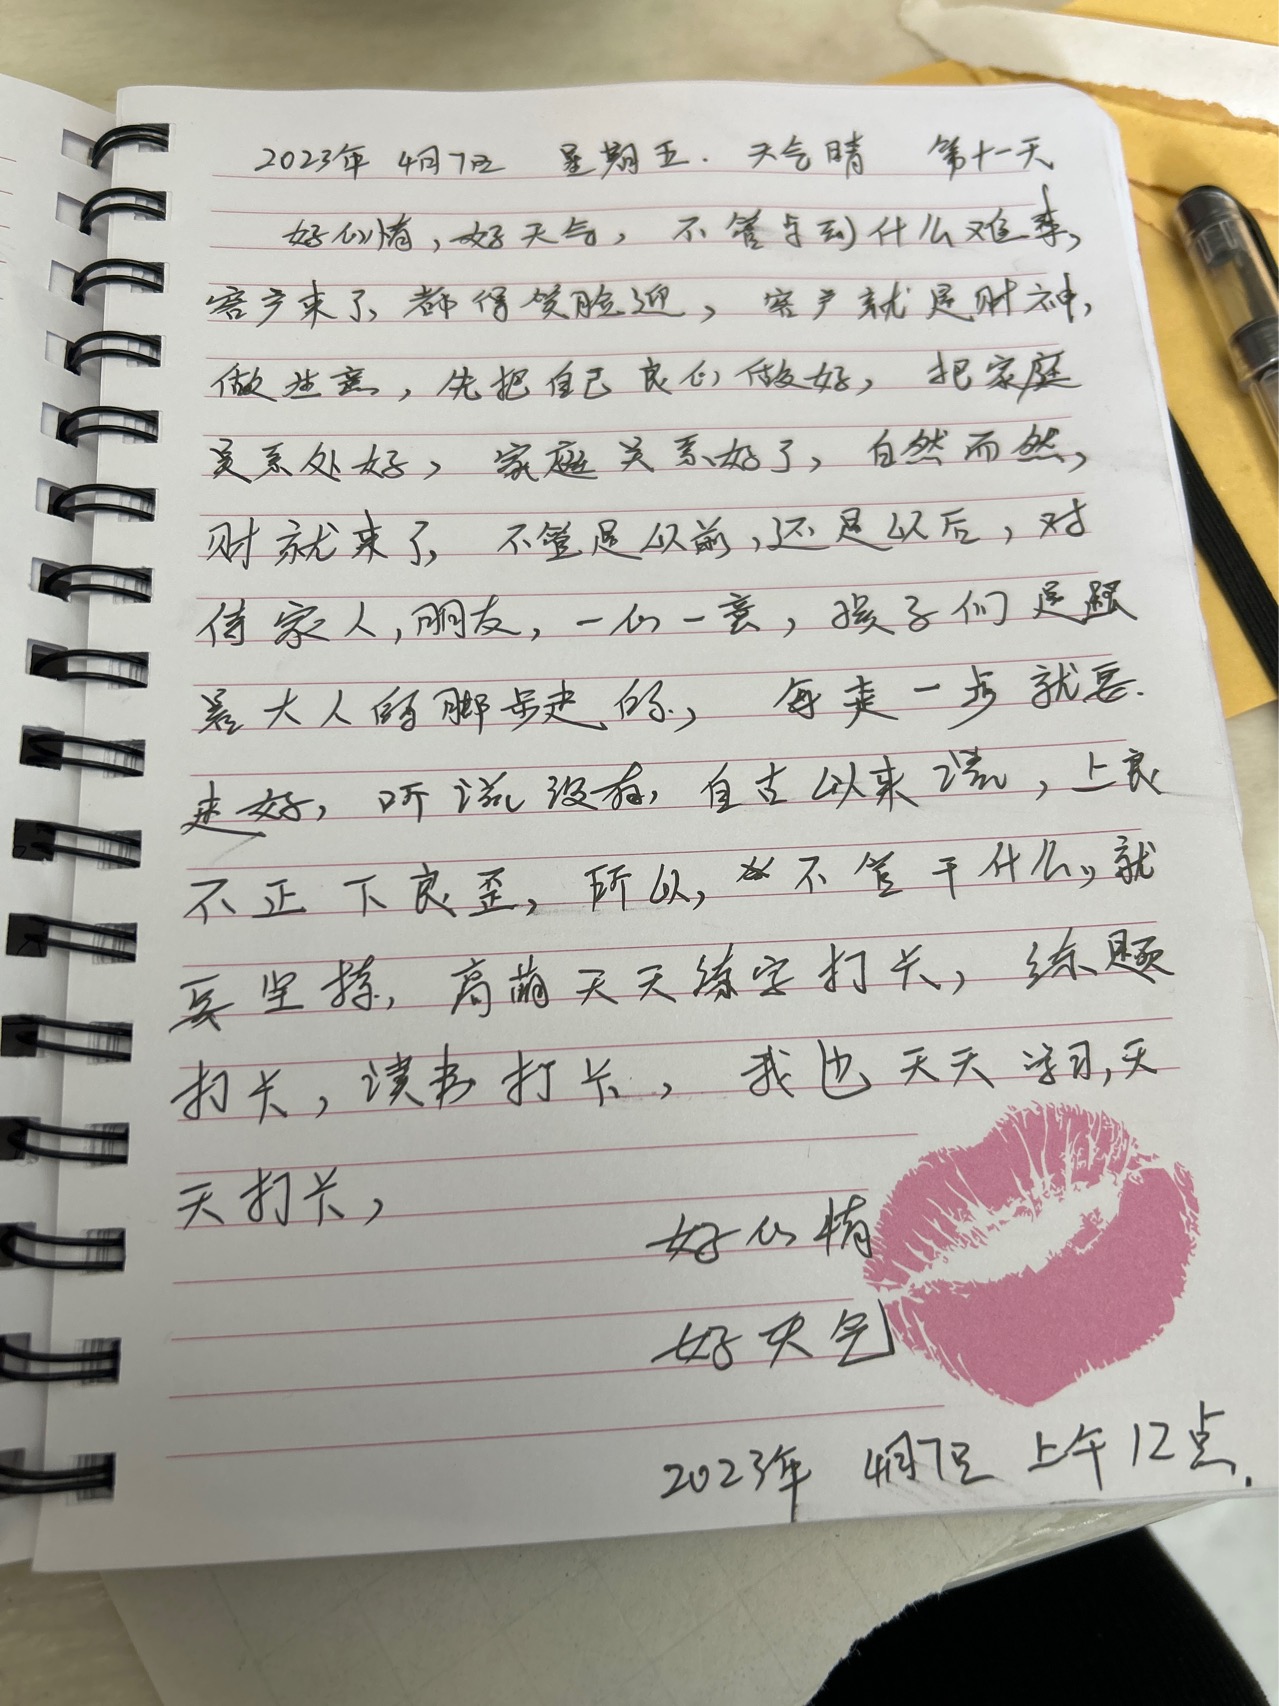 2023年 4月7日 星期五. 天气晴 第十一天
好心情，好天气，不管与到什么难事，
客户来了，都得笑脸迎，客户就是财神，
做生意，先把自己良心做好，把家庭
关系处好，家庭关系好了，自然而然，
财就来了，不管是以前，还是以后，对
待家人，朋友，一心一意，孩子们是跟
着大人的脚步走的，每走一步就要.
走好，听说没有，自古以来说，上良
不正下良歪，所以，不管干什么，就
要坚持，高萌天天练字打卡，练题
打卡，读书打卡，我也天天学习，天
天打卡，
好心情
好天气
2023年 4月7日 上午12点.